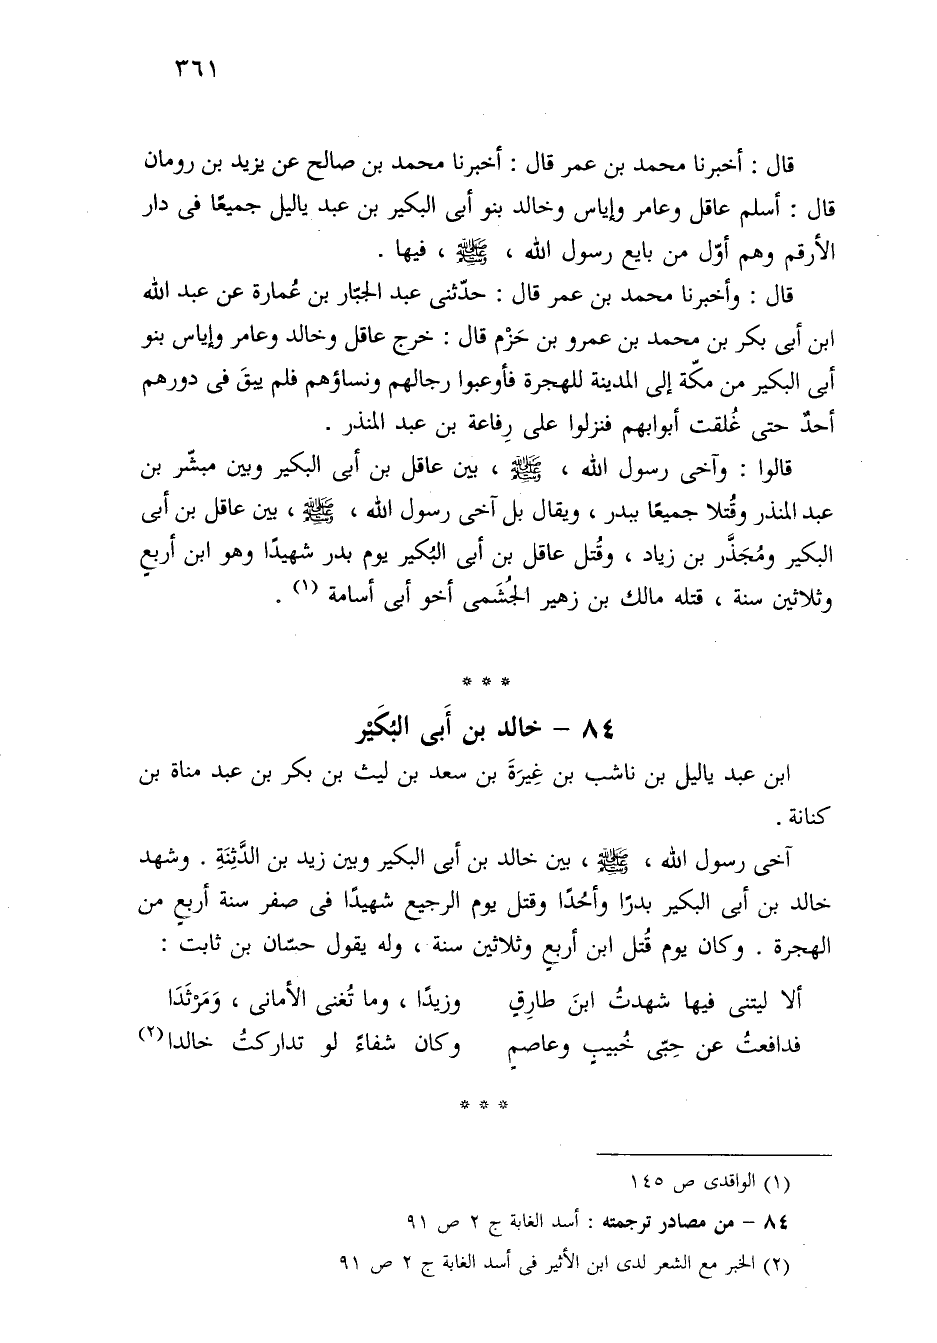 ٣٦١
قال : أخبرنا محمد بن عمر قال : أخبرنا محمد بن صالح عن يزيد بن رومان
قال : أسلم عاقل وعامر وإياس وخالد بنو أبى البكير بن عبد ياليل جميعًا فى دار
الأرقم وهم أوّل من بايع رسول الله ، ﷺ ، فيها .
قال : وأخبرنا محمد بن عمر قال : حدّثنى عبد الجبّار بن عُمارة عن عبد الله
ابن أبى بكر بن محمد بن عمرو بن حَزْم قال : خرج عاقل وخالد وعامر وإياس بنو
أبى البكير من مكّة إلى المدينة للهجرة فأوعبوا رجالهم ونساؤهم فلم يبقَ فى دورهم
أحدٌ حتى غُلقت أبوابهم فنزلوا على رِفاعة بن عبد المنذر .
قالوا : وآخى رسول الله ، ﷺ ، بين عاقل بن أبى البكير وبين مبشّر بن
عبد المنذر وقُتلا جميعًا ببدر ، ويقال بل آخى رسول الله ، ﷺ ، بين عاقل بن أبى
البكير ومُجَذَّر بن زياد ، وقُتل عاقل بن أبى البُكير يوم بدر شهيدًا وهو ابن أربعٍ
وثلاثين سنة ، قتله مالك بن زهير الجُشَمى أخو أبى أسامة (١) .
* * *
٨٤ – خالد بن أَبى البُكَيْر
ابن عبد ياليل بن ناشب بن غِيرَةَ بن سعد بن ليث بن بكر بن عبد مناة بن
كنانة .
آخى رسول الله ، ﷺ ، بين خالد بن أبى البكير وبين زيد بن الدَّثِنَةِ . وشهد
خالد بن أبى البكير بدرًا وأُحُدًا وقتل يوم الرجيع شهيدًا فى صفر سنة أربعٍ من
الهجرة . وكان يوم قُتل ابن أربعٍ وثلاثين سنة ، وله يقول حسّان بن ثابت :
ألا ليتنى فيها شهدتُ ابنَ طارِقٍ وزيدًا ، وما تُغنى الأمانى ، وَمَرْثَدَا
فدافعتُ عن حِبّى خُبيبٍ وعاصمٍ وكان شفاءً لو تداركتُ خالدا(٢)
* * *
(١) الواقدى ص ١٤٥
٨٤ – من مصادر ترجمته : أسد الغابة ج ٢ ص ٩١
(٢) الخبر مع الشعر لدى ابن الأثير فى أسد الغابة ج ٢ ص ٩١